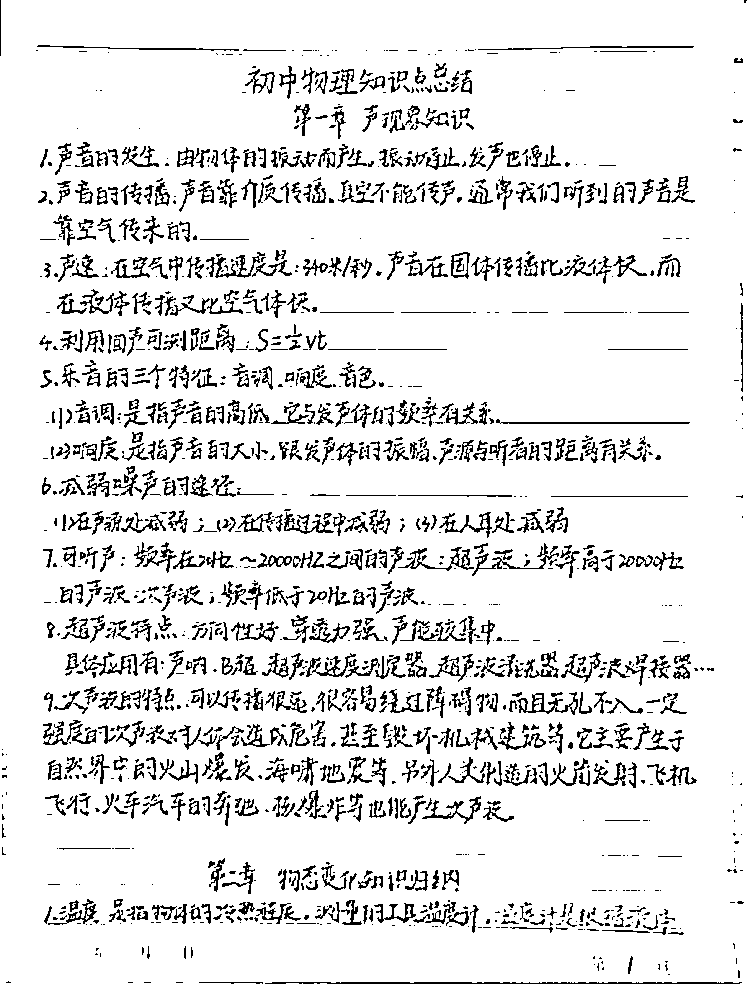 初中物理知识点总结
第一章 声现象知识
1.声音的发生:由物体的振动而产生,振动停止,发声也停止。
2.声音的传播:声音靠介质传播。真空不能传声。通常我们听到的声音是
靠空气传来的。
3.声速:在空气中传播速度是:340米/秒。声音在固体传播比液体快,而
在液体传播又比空气体快。
4.利用回声可测距离:S=½vt
5.乐音的三个特征:音调、响度、音色。
(1)音调:是指声音的高低,它与发声体的频率有关系。
(2)响度:是指声音的大小,跟发声体的振幅、声源与听者的距离有关系。
6.减弱噪声的途径:
(1)在声源处减弱;(2)在传播过程中减弱;(3)在人耳处减弱
7.可听声:频率在20Hz~20000HZ之间的声波:超声波;频率高于20000Hz
的声波:次声波;频率低于20Hz的声波。
8.超声波特点:方向性好、穿透力强、声能较集中。
具体应用有:声呐、B超、超声波速度测定器、超声波清洗器、超声波焊接器…
9.次声波的特点:可以传播很远,很容易绕过障碍物,而且无孔不入。一定
强度的次声波对人体会造成危害,甚至毁坏机械建筑等。它主要产生于
自然界中的火山爆发、海啸地震等,另外人类制造的火箭发射、飞机
飞行、火车汽车的奔驰、核爆炸等也能产生次声波。
第二章 物态变化知识归纳
1.温度:是指物体的冷热程度。测量的工具温度计,温度计是根据液体
年 月 日
第 1 页